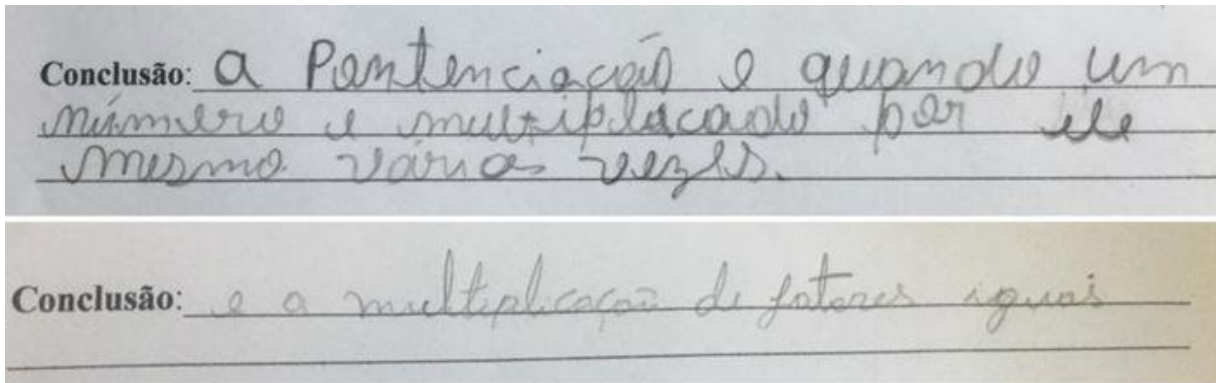 Conclusão: a Pontenciação e quando um
número e multiplacado por ele
mesmo várias vezes.
Conclusão: e a multiplicação de fatores iguais